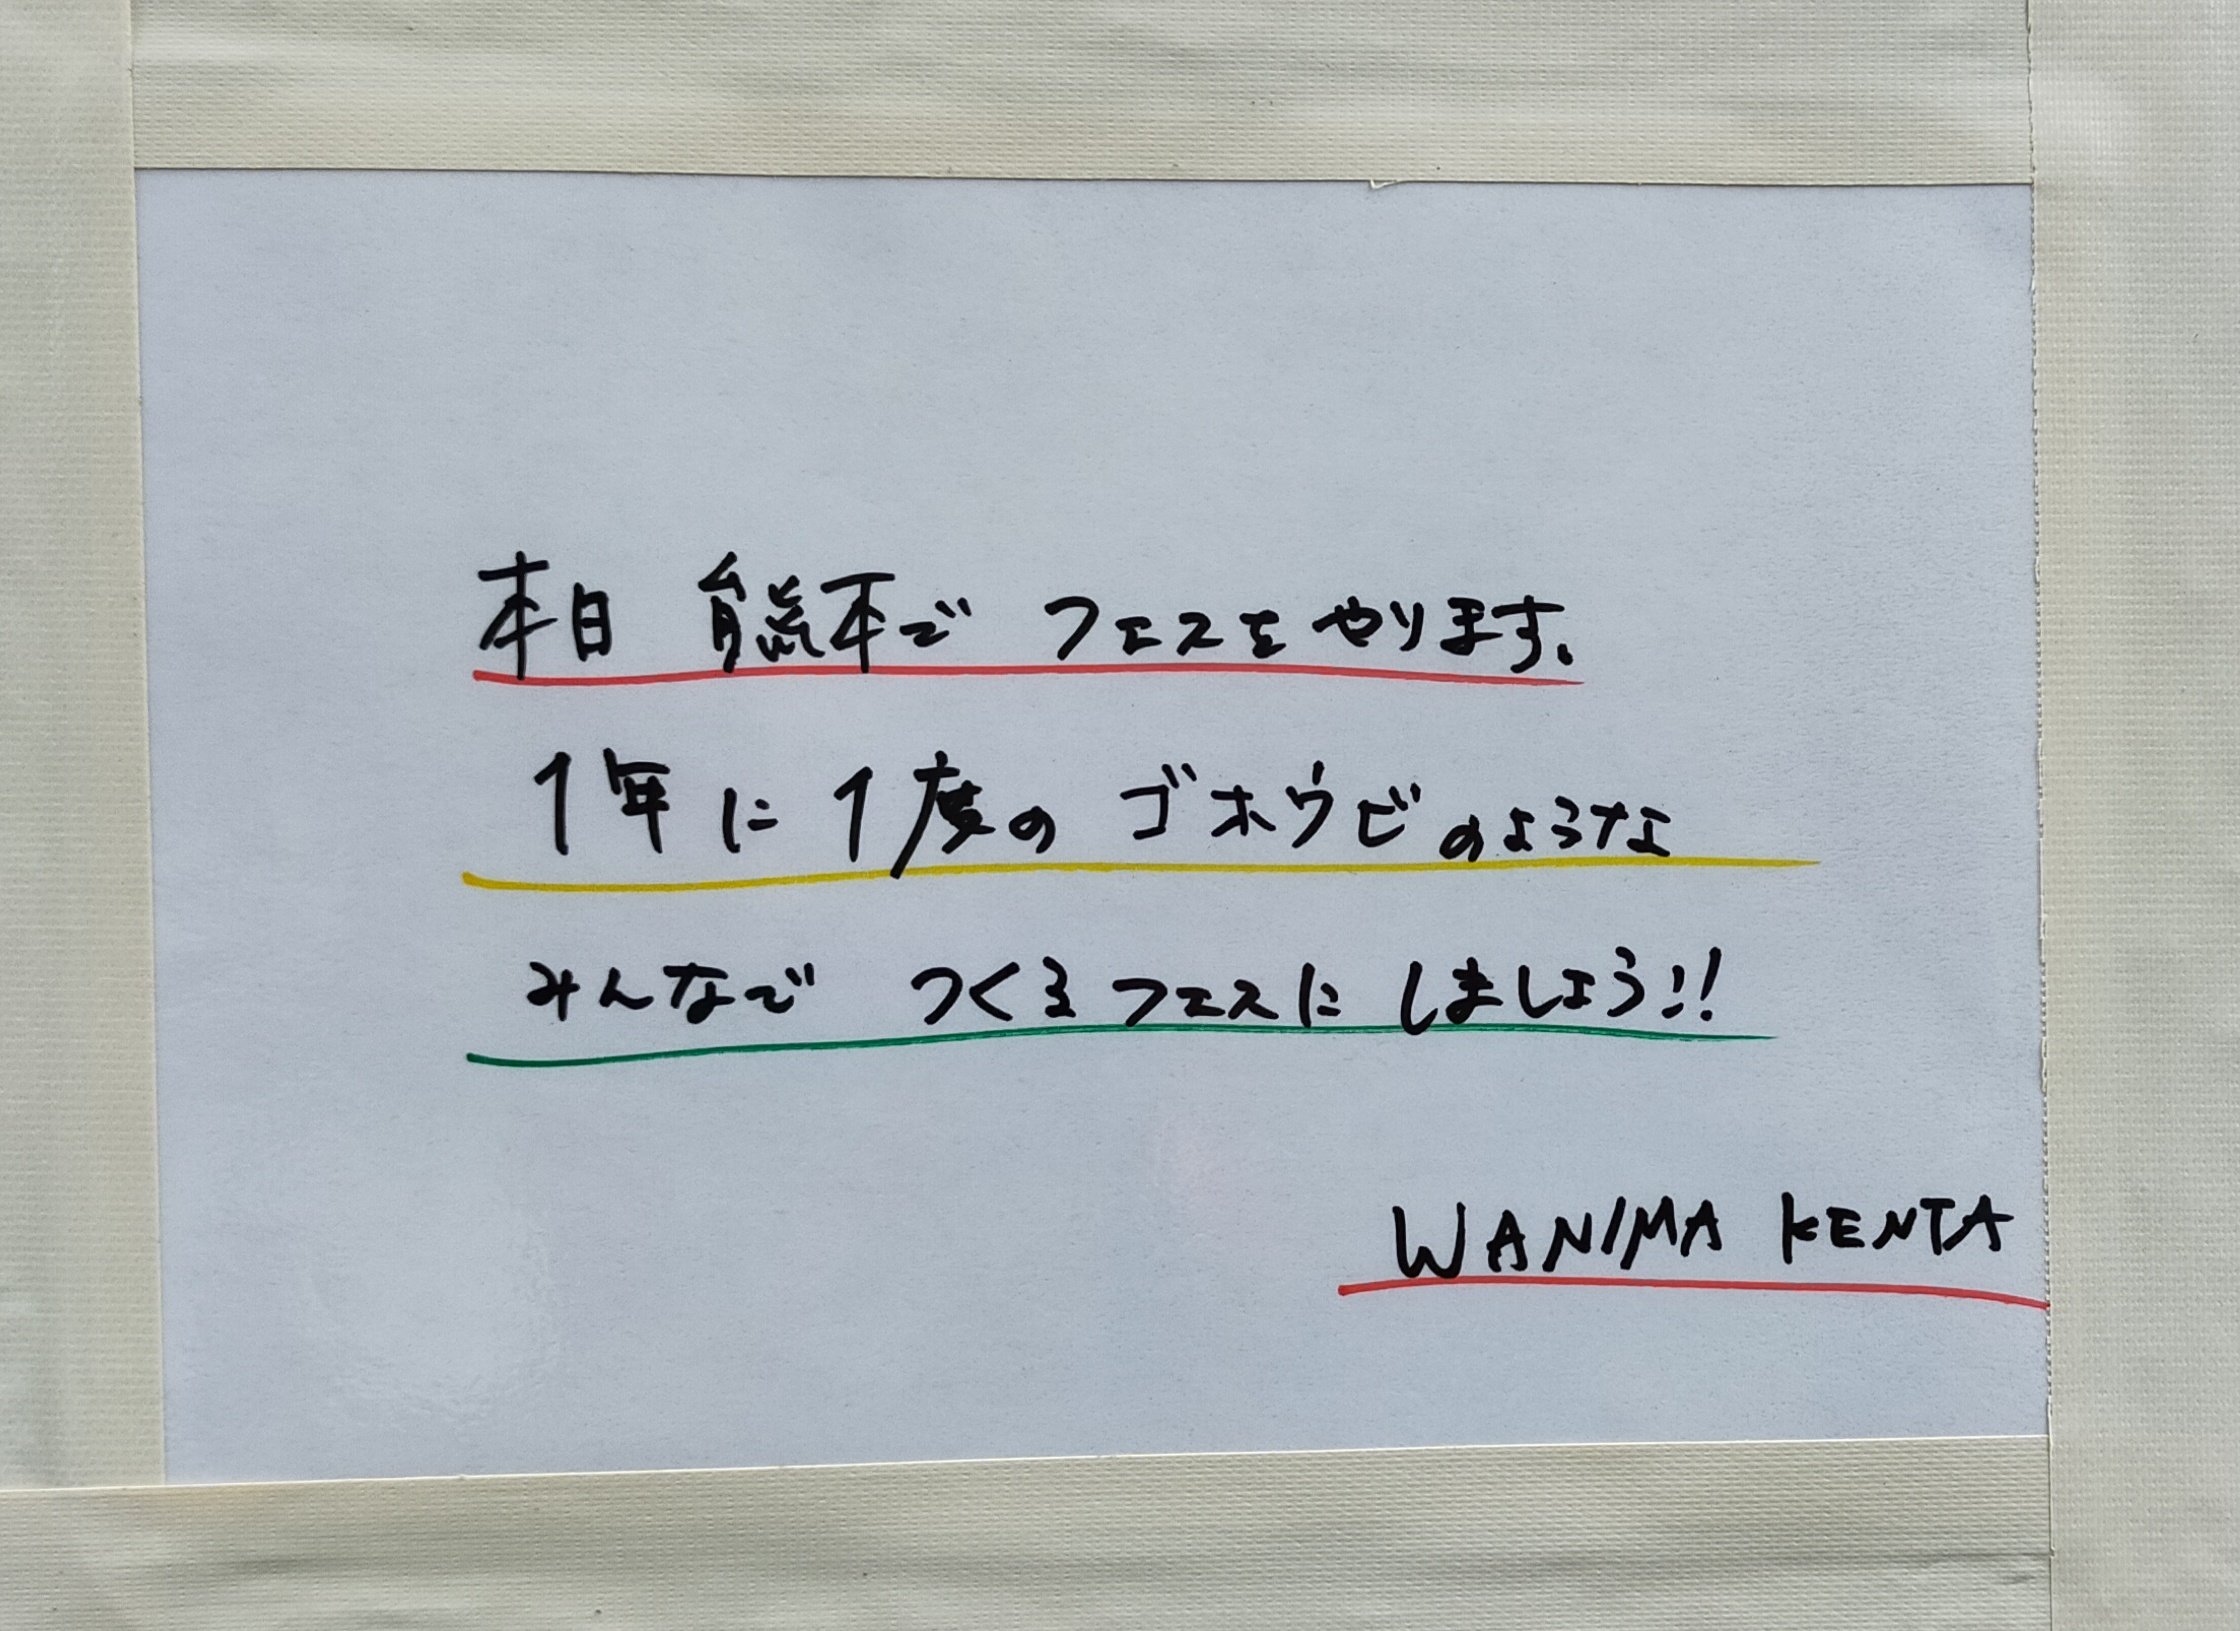 本日 熊本で フェスをやります。
1年に1度の ゴホウビのような
みんなで つくるフェスに しましょう!!
WANIMA KENTA